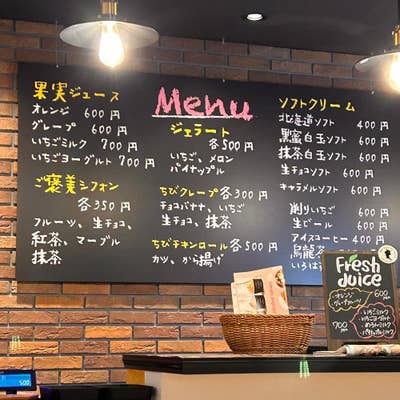 Menu
果実ジュース
オレンジ 600円
グレープ 600円
いちごミルク 700円
いちごヨーグルト 700円
ご褒美シフォン
各350円
フルーツ、生チョコ、
紅茶、マーブル
抹茶
ジェラート
各500円
いちご、メロン
パイナップル
ちびクレープ 各300円
チョコバナナ、いちご
生チョコ、抹茶
ちびチキンロール 各500円
カツ、から揚げ
ソフトクリーム
北海道ソフト 400円
黒蜜白玉ソフト 600円
抹茶白玉ソフト 600円
生チョコソフト 600円
キャラメルソフト 600円
削りいちご 600円
生ビール 600円
アイスコーヒー 400円
烏龍茶
いろは
Fresh
Juice
オレンジ
600
700
いちごミルク
500